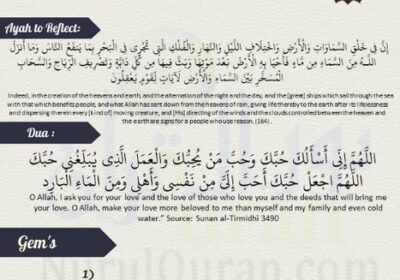 Ayah to Reflect:
إِنَّ فِي خَلْقِ السَّمَاوَاتِ وَالْأَرْضِ وَاخْتِلَافِ اللَّيْلِ وَالنَّهَارِ وَالْفُلْكِ الَّتِي تَجْرِي فِي الْبَحْرِ بِمَا يَنفَعُ النَّاسَ وَمَا أَنزَلَ
اللَّهُ مِنَ السَّمَاءِ مِن مَّاءٍ فَأَحْيَا بِهِ الْأَرْضَ بَعْدَ مَوْتِهَا وَبَثَّ فِيهَا مِن كُلِّ دَابَّةٍ وَتَصْرِيفِ الرِّيَاحِ وَالسَّحَابِ
الْمُسَخَّرِ بَيْنَ السَّمَاءِ وَالْأَرْضِ لَآيَاتٍ لِّقَوْمٍ يَعْقِلُونَ
Indeed, in the creation of the heavens and earth, and the alternation of the night and the day, and the [great] ships which sail through the sea
with that which benefits people, and what Allah has sent down from the heavens of rain, giving life thereby to the earth after its lifelessness
and dispersing therein every [kind of] moving creature, and [His] directing of the winds and the clouds controlled between the heaven and
the earth are signs for a people who use reason. (164) .
Dua :
اللَّهُمَّ إِنِّي أَسْأَلُكَ حُبَّكَ وَحُبَّ مَنْ يُحِبُّكَ وَالْعَمَلَ الَّذِي يُبَلِّغُنِي حُبَّكَ
اللَّهُمَّ اجْعَلْ حُبَّكَ أَحَبَّ إِلَيَّ مِنْ نَفْسِي وَأَهْلِي وَمِنَ الْمَاءِ الْبَارِدِ
O Allah, I ask you for your love and the love of those who love you and the deeds that will bring me
your love. O Allah, make your love more beloved to me than myself and my family and even cold
water.” Source: Sunan al-Tirmidhi 3490
Gem's
NurulQuran.com
1)